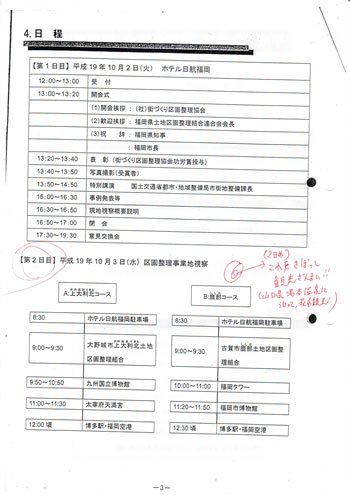 4.日 程
【第1日目】平成19年10月2日(火) ホテル日航福岡
12:00～13:00 受 付
13:00～13:20 開会式
(1)開会挨拶 : (社)街づくり区画整理協会
(2)歓迎挨拶 : 福岡県土地区画整理組合連合会会長
(3)祝 辞 : 福岡県知事
: 福岡市長
13:20～13:40 表 彰 (街づくり区画整理協会功労賞授与)
13:40～13:50 写真撮影(受賞者)
13:50～14:50 特別講演 国土交通省都市・地域整備局市街地整備課長
15:00～16:30 事例発表等
16:30～16:50 現地視察概要説明
16:50～17:00 閉 会
17:30～19:30 意見交換会
【第2日目】平成19年10月3日(水) 区画整理事業地視察
(2日め)
これをさぼって
A:上大利北コース
B:鹿部コース
8:30 ホテル日航福岡駐車場
9:00～9:30 大野城市上大利北土地
区画整理組合
9:50～10:50 九州国立博物館
11:00～11:30 太宰府天満宮
12:00 頃 博多駅・福岡空港
8:30 ホテル日航福岡駐車場
9:00～9:30 古賀市鹿部土地区画整
理組合
10:00～11:00 福岡タワー
11:20～11:50 福岡市博物館
12:00 頃 博多駅・福岡空港
－3－